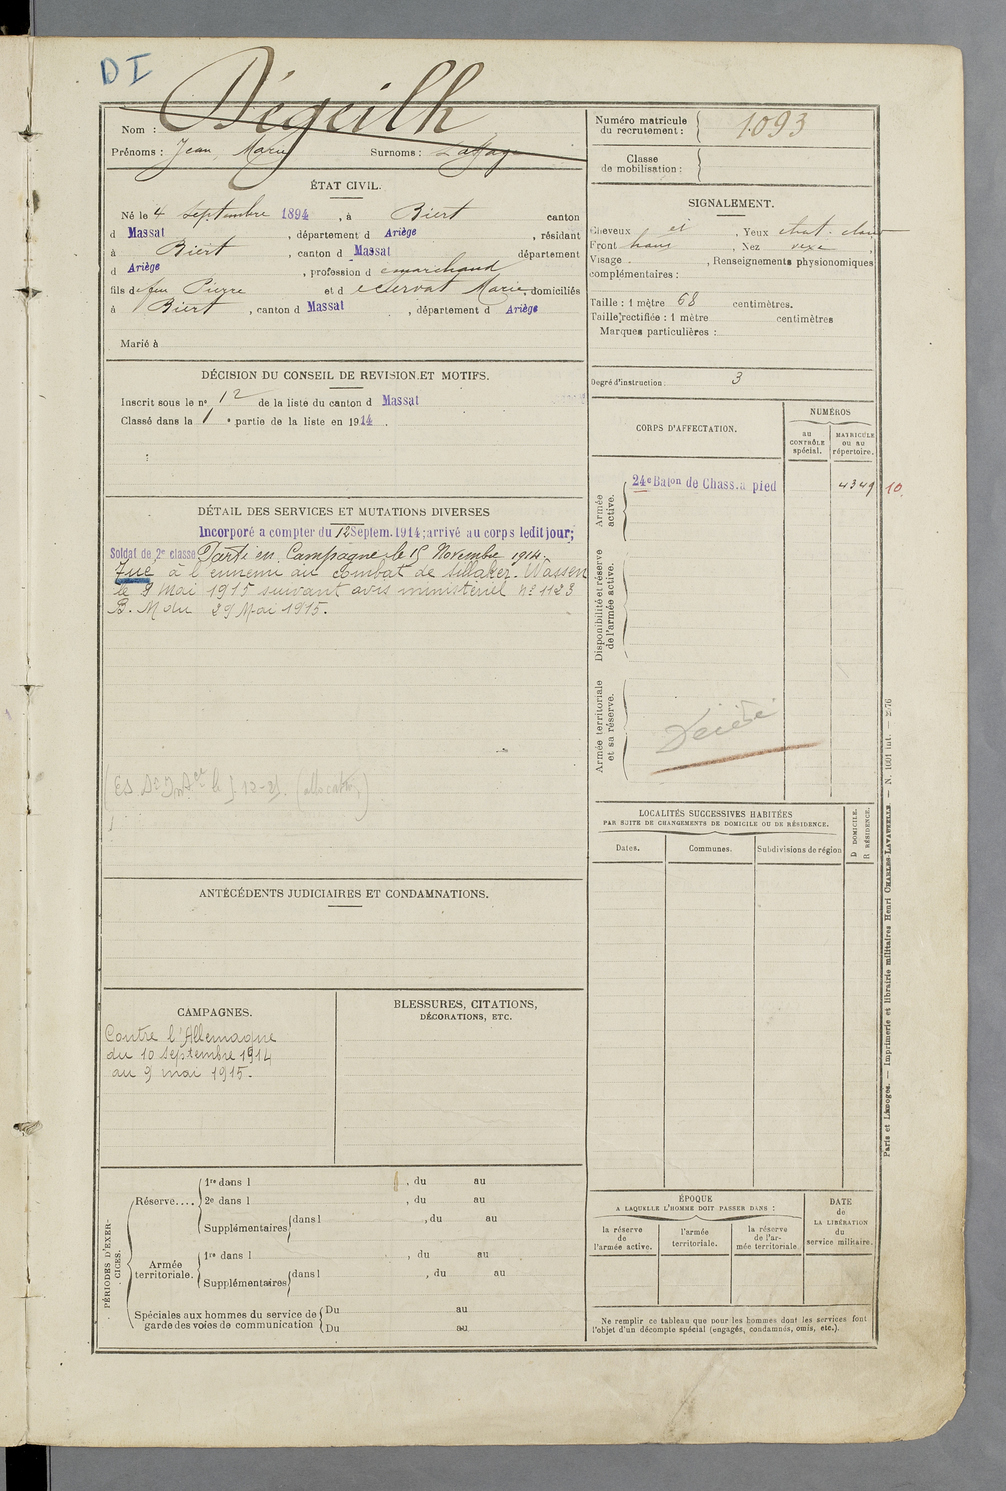 DI
Nom : Dégeilh
Prénoms : Jean, Marie Surnoms :
Numéro matricule du recrutement : 1093
Classe de mobilisation :
ÉTAT CIVIL.
Né le 4 Septembre 1894, à Biert canton
d Massat, département d Ariège, résidant
à Biert, canton d Massat département
d Ariège, profession d e marchand
fils de feu Pierre et d e Servat Marie domiciliés
à Biert, canton d Massat, département d Ariège
Marié à
SIGNALEMENT.
Cheveux, Yeux chat. clair
Front, Nez
Visage, Renseignements physionomiques
complémentaires :
Taille : 1 mètre 68 centimètres.
Taille rectifiée : 1 mètre centimètres
Marques particulières :
Degré d'instruction : 3
DÉCISION DU CONSEIL DE REVISION ET MOTIFS.
Inscrit sous le n° 12 de la liste du canton d Massat
Classé dans la 1e partie de la liste en 1914.
DÉTAIL DES SERVICES ET MUTATIONS DIVERSES
Incorporé a compter du 12 Septem. 1914; arrivé au corps ledit jour;
Soldat de 2e classe Parti en Campagne le 15 Novembre 1914.
Tué à l'ennemi au combat de Sillaker-Wassen
le 9 Mai 1915 suivant avis ministériel n° 1123
B. M du 29 Mai 1915.
CORPS D'AFFECTATION.
NUMÉROS
au CONTRÔLE spécial.
MATRICULE OU AU répertoire.
Armée active.
24e Baton de Chass. à pied 4349 10
Disponibilité et réserve de l'armée active.
Armée territoriale et sa réserve.
Décédé
LOCALITÉS SUCCESSIVES HABITÉES
PAR SUITE DE CHANGEMENTS DE DOMICILE OU DE RÉSIDENCE.
Dates. Communes. Subdivisions de région
D DOMICILE.
R RÉSIDENCE.
ANTÉCÉDENTS JUDICIAIRES ET CONDAMNATIONS.
CAMPAGNES.
Contre l'Allemagne
du 10 Septembre 1914
au 9 mai 1915.
BLESSURES, CITATIONS,
DÉCORATIONS, ETC.
PÉRIODES D'EXERCICES.
Réserve....
1re dans l , du au
2e dans l , du au
Supplémentaires dans l , du au
Armée territoriale.
1re dans l , du au
Supplémentaires dans l , du au
Spéciales aux hommes du service de
garde des voies de communication
Du au
Du au
ÉPOQUE
A LAQUELLE L'HOMME DOIT PASSER DANS :
la réserve de l'armée active.
l'armée territoriale.
la réserve de l'armée territoriale
DATE de LA LIBÉRATION du service militaire.
Ne remplir ce tableau que pour les hommes dont les services font
l'objet d'un décompte spécial (engagés, condamnés, omis, etc.).
Paris et Limoges. — Imprimerie et librairie militaires Henri CHARLES-LAVAUZELLE. — N. 1001 int. — 2/76